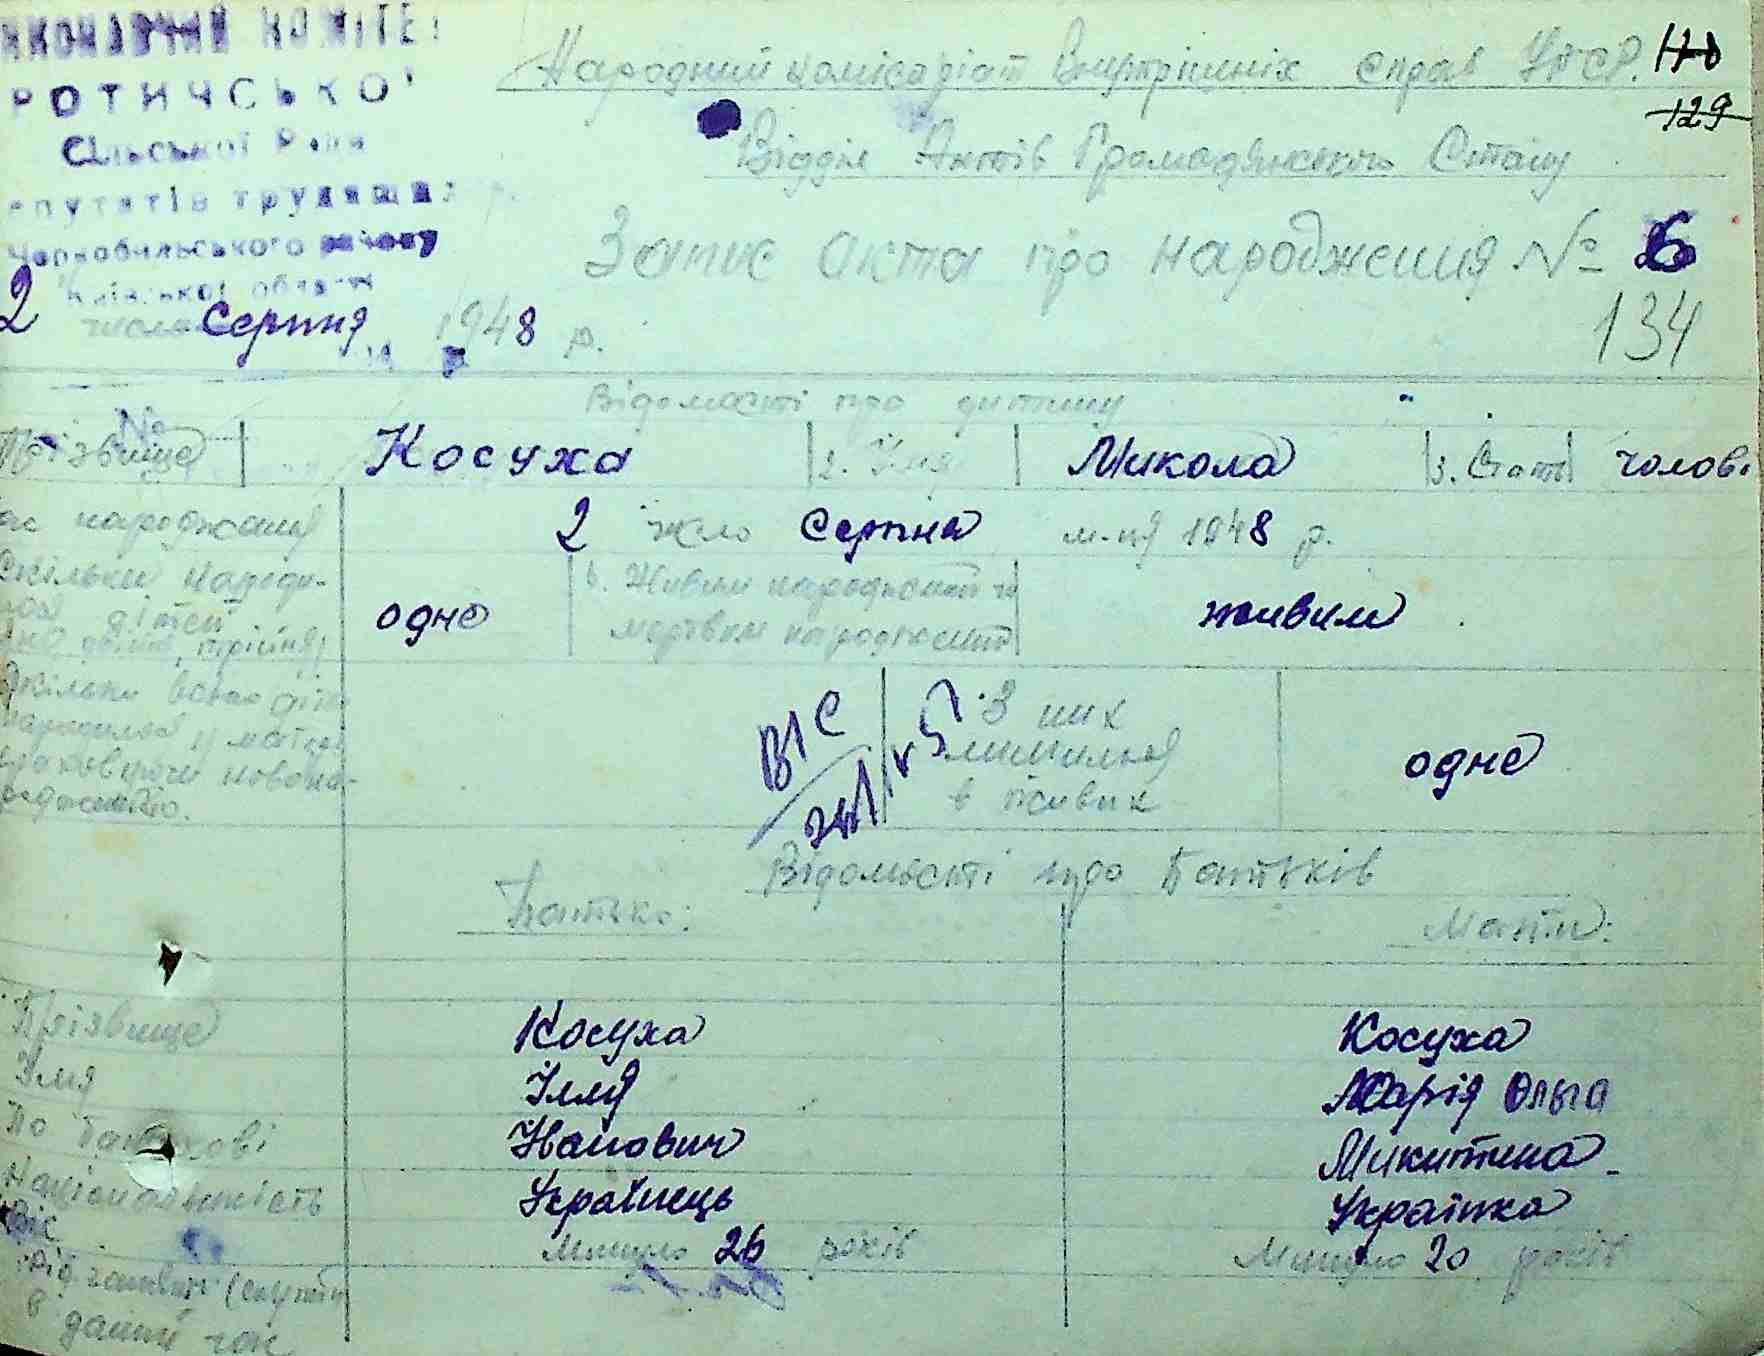 ИКОНАВЧИЙ КОМІТЕТ
РОТИЧСЬКОЇ
Сільської Ради
епутатів трудящих
Чорнобильського району
Київської області
Народний комісаріат Внутрішніх справ УРСР.
129
Відділ Актів Громадянського Стану
Запис акта про народження № 6
134
2 числа Серпня 1948 р.
Відомості про дитину
Прізвище Косуха 2. Імя Микола 3. Стать чолові
ас народження 2 число Серпня м-ця 1948 р.
Скільки народи-
лось дітей
одне
6. Живим народжений чи
мертвим народжений
живим
Скільки всього дітей
народилось у матері
враховуючи новона-
родженого.
ВІС
З них
лишилось
в живих
одне
Відомості про батьків
Батько: Мати:
Прізвище Косуха Косуха
Імя Ілля Марія Ольга
По батькові Іванович Микитина
Національність Українець Українка
Вік Минуло 26 років Минуло 20 років
в даний час